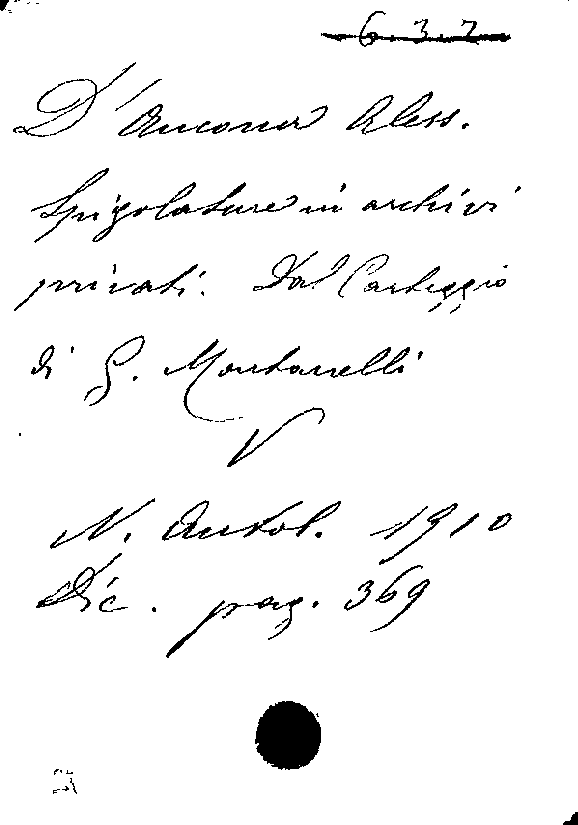 6.3.2
D'Ancona Aless.
Spigolature in archivi
privati. Dal Carteggio
di G. Montanelli
V
N. Antol. 1910
Dic. pag. 369